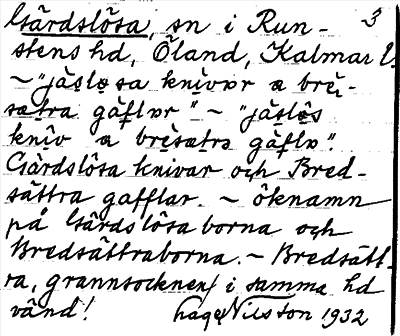 Gärdslösa, sn i Run- 3
stens hd, Öland, Kalmar l.
~ "jäs̩lo̩sa kni̇vɒr a brè̩-
sætra gáf̩lɒr" ~ "jäs̩lo̩s
kni̇v a brè̩sætrɒ gáf̩lɒ".
Gärdslösa knivar och Bred-
sättra gafflar. ~ öknamn
på Gärdslösaborna och
Bredsättraborna. ~ Bredsätt-
ra, grannsocknen i samma hd
vänd! Nilsson 1932